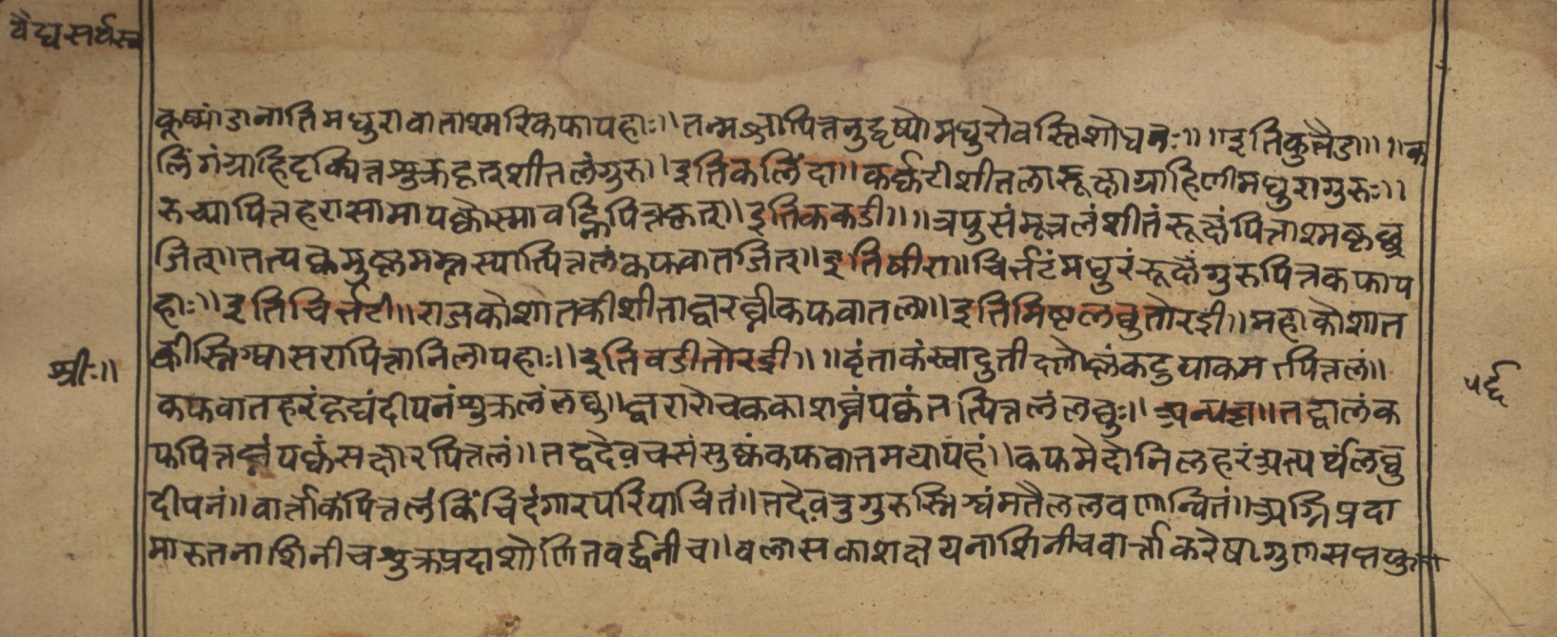 वैद्यसर्वस्व
कूष्मांडानातिमधुरावाताश्मरिकफापहाः॥तन्मज्जापित्तनुद्दृष्योमधुरोवस्तिशोधनः॥॥इतिकुह्लैडा॥॥क
लिंगंग्राहिदृक्पित्तशुक्रहृत्शीतलंगुरु॥इतिकलिंदा॥कर्कटीशीतलारूक्षाग्राहिणीमधुरागुरुः॥
रुच्यापित्तहरासामापक्वोस्मावह्निपित्तकृत्॥इतिककडी॥॥त्रपुसंमूत्रलंशीतंरूक्षंपित्ताश्मकृछ्र
जित्॥तत्पक्वमुष्णमम्लस्यात्पित्तलंकफवातजित्॥इतिषीरा॥चिर्भटंमधुरंरूक्षंगुरुपित्तकफाप
हाः॥इतिचिर्भटी॥राजकोशातकीशीताज्वरघ्नीकफवातला॥इतिमिष्टलघुतोरई॥महाकोशात
कीस्निग्धासरापित्तानिलापहाः॥इतिवडीतोरई॥॥वृंताकंस्वादुतीक्ष्णोष्णंकटुपाकमपित्तलं॥
श्रीः॥
कफवातहरंहृद्यंदीपनंशुक्रलंलघु॥ज्वरारोचककाशघ्नंपक्वंतत्पित्तलंलघुः॥अन्यच्च॥तद्वालंक
फपित्तघ्नंपक्वंसक्षारपित्तलं॥तद्वदेवचसंसुष्कंकफवातमथापहं॥कफमेदोनिलहरंअत्यर्थंलघु
दीपनं॥वार्ताकंपित्तलंकिंचिदंगारपरिपाचितं॥तदेवतुगुरुस्निग्धंमतैललवणान्वितं॥अग्निप्रदा
मारुतनाशिनीचशुक्रप्रदाशोणितवर्द्धनीच॥वलासकाशक्षयनाशिनीचवार्ताकरेषागुणसप्तयुक्ता